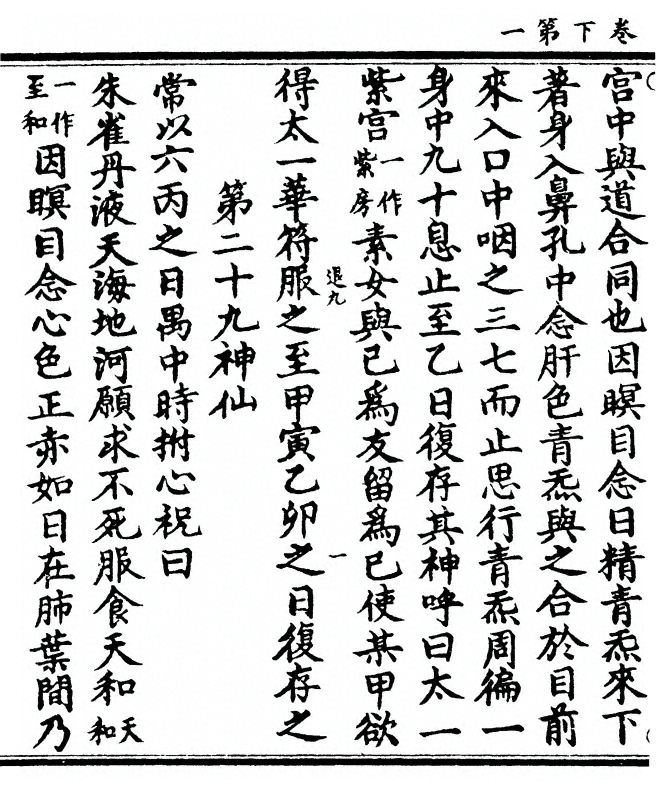 卷下第一
宫中與道合同也因瞑目念日精青炁來下
著身入鼻孔中念肝色青炁與之合於目前
來入口中咽之三七而止思行青炁周徧一
身中九十息止至乙日復存其神呼曰太一
紫宫一作紫房素女與已爲友留爲已使某甲欲
得太一華符服之至甲寅乙卯之日復存之
退九
一
第二十九神仙
常以六丙之日禺中時拊心祝曰
朱雀丹液天海地河願求不死服食天和天和
一作至和因瞑目念心色正赤如日在肺葉間乃